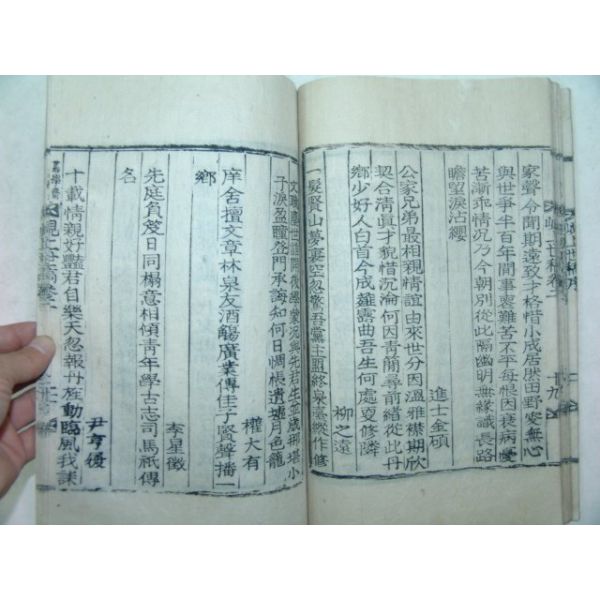 家聲令聞期遠致才格惜小成居然田野安無心
與世爭半百年間事喪難苦不平每帳因衰病憂
苦漸乖情況乃今朝別從此隔幽明無緣識長路
瞻望淚沾纓
進士金碩
公家兄弟最相親情誼由來世分因溫雅襟期欣
契合清眞才貌惜沉淪何因靑簡尋前緖從此丹
鄕少好人白首今成薤露曲吾生何處更修隣
柳之遠
一髮賢山夢裏空忽驚吾黨主盟終泉臺縱作修
文 後學 況與先君生並歲那堪小
子淚盈瞳登門承誨知何日惆悵遺墟月色朧
權大有
庠舍擅文章林泉友酒觴廣業傳佳子賢聲播一
鄕
李星徵
先庭負笈日同榻意相傾靑年學古志司馬秖傳
名
尹亨復
十載情親好豔君自樂天忽報丹旌動臨風我淚